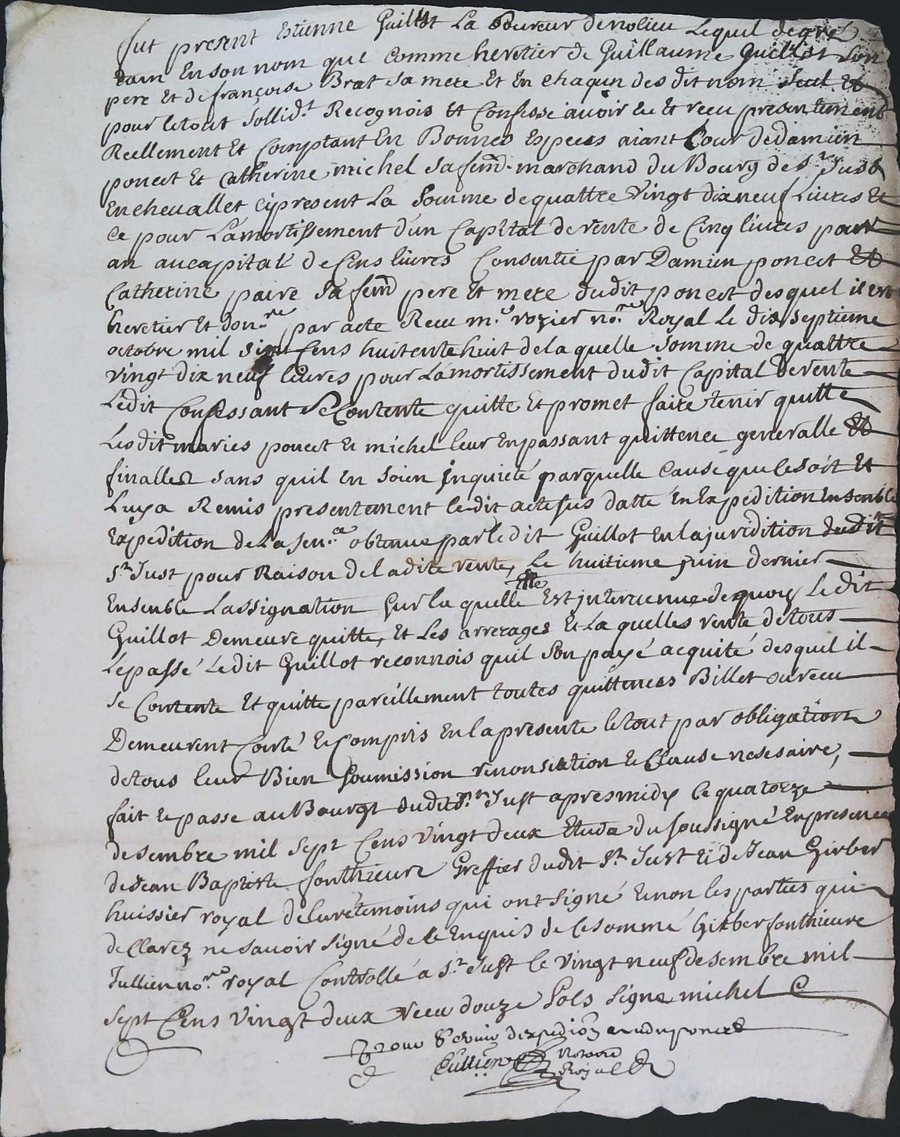 fut present Estienne Guillot La Boureur de nolieu Lequel de gré
tain En son nom que comme heretier de Guillaume Guillot son
pere Et de francoise Brat sa mere Et en chaqun des dit nom seul Et
pour le tout sollid.t Recognois Et Confesse avoir Eu Et recu presentement
Reellement Et Comptant En Bonnes Especes aiant Cour de damien
poncet Et Catherine michel sa fem̄ marchand du Bourg de s.t Just
En chevallet cy present La somme de quattre vingt dix neuf Livres Et
Ce pour Lamortissement d'un Capital de rente de Cinq livres pour
an au capital de Cens livres Consentie par Damien poncet Et
Catherine paire sa fem̄ pere Et mere dudit poncet desquel il est
heretier Et don.re par acte Recu m.e rozier no.re Royal Le dix septieme
octobre mil six Cens huitente huit de la quelle somme de quattre
vingt dix neuf livres pour Lamortissement dudit Capital de rente
Ledit Confessant se Contente quitte Et promet faire tenir quitte
Les dit maries poncet Et michel leur En passant quittence generalle Et
finalle sans quil En soien inquieté par quelle Cause que ce soit Et
Luy a Remis presentement le dit acte sus datte En Expedition Ensenble
Expedition de La sen.ce obtenue par le dit Guillot En la juridition dudit
s.t Just pour Raison de la dite rente, Le huitieme juin dernier
Ensenble Lassignation sur la quelle Elle Est intervenue de quoy Le dit
Guillot Demeure quitte, Et Les arrerages Et La quelles rente de tous
Le passé Le dit Guillot reconnois quil son payé acquité desquel il
se Contente Et quitte pareillement toutes quittences Billet ou recu
Demeurent Conté Et Compris En la presente le tout par obligation
de tous leur Bien soumission renonsiation Et Clause nesesaire,
fait Et passe au Bourgt dudit s.t Just apres midy Ce quatorze
desembre mil sept Cens vingt deux Etude du soussigné En presence
de Jean Baptiste fonthieure Greffier dudit s.t Just Et de Jean Girber
huissier royal de Cervetemoins qui ont signé Et non les parties qui
de Clarez ne savoir signé de ce Enquis de Ce sommé Girber fonthieure
Jullien no.re royal Controllé a s.t Just le vingt neuf desembre mil
sept Cens vingt deux recu douze sols signe michel
pour servir d'expedion audit poncet
Jullien Notaire
Royal